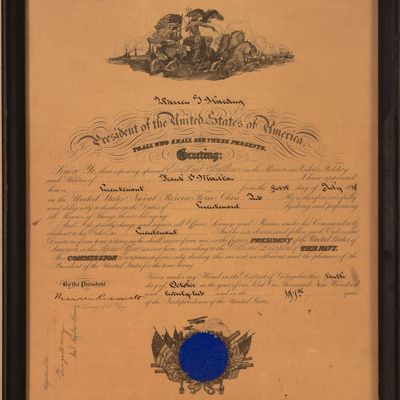 Warren G Harding
President of the United States of America.
TO ALL WHO SHALL SEE THESE PRESENTS,
Greeting:
Know Ye, that reposing special Trust and Confidence in the Patriotism, Valor, Fidelity
and Abilities of Frank I have appointed
him a Lieutenant from the First day of July
in the United States Naval Reserve Force Class He is therefore carefully
and diligently to discharge the Duties of Lieutenant by doing and performing
all Manner of Things thereto belonging.
And I do strictly charge and require all Officers, Seamen and Marines under his Command to be
obedient to his Orders as Lieutenant And he is to observe and follow such Orders and
Directions from time to time as he shall receive from me, or the future PRESIDENT of the United States of
America, or his Superior Officer set over him, according to the Rules and Discipline of the NAVY.
This COMMISSION to continue in force only during the pleasure of the
President of the United States for the time being.
Given under my Hand in the District of Columbia this tenth
By the President day of October in the year of our Lord One Thousand Nine Hundred
and twenty two and in the 147th year
of the Independence of the United States.
Secretary of the Navy
Registered No.